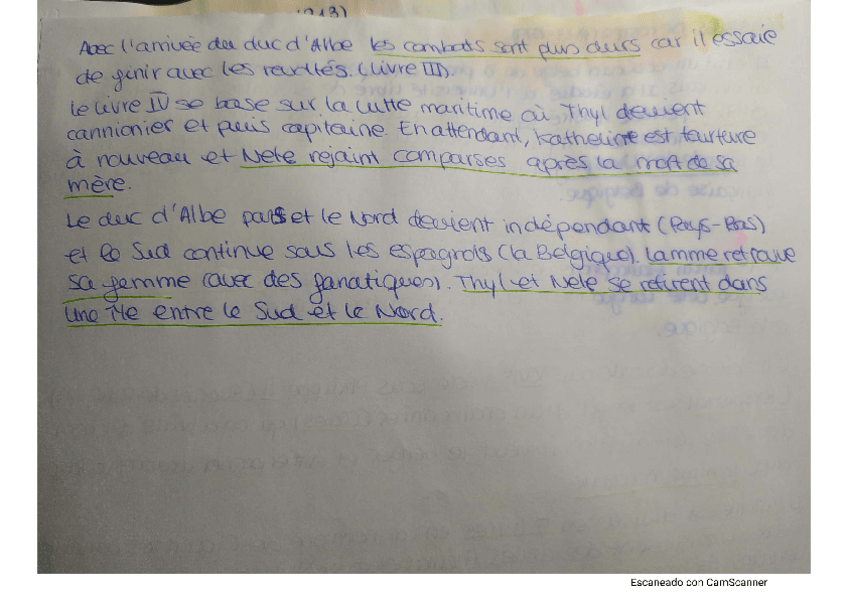 Avec l'arrivée du duc d'Albe les combats sont plus durs car il essaie
de finir avec les revoltés. (Livre III).
Le livre IV se base sur la lutte maritime où Thyl devient
cannionier et puis capitaine. En attendant, Katheline est torture
à nouveau et Nele rejoint comparses après la mort de sa
mère.
Le duc d'Albe part et le Nord devient indépendant (Pays-Bas)
et le Sud continue sous les espagnols (la Belgique). Lamme retrouve
sa femme (avec des fanatiques). Thyl et Nele se retirent dans
une île entre le Sud et le Nord.
Escaneado con CamScanner